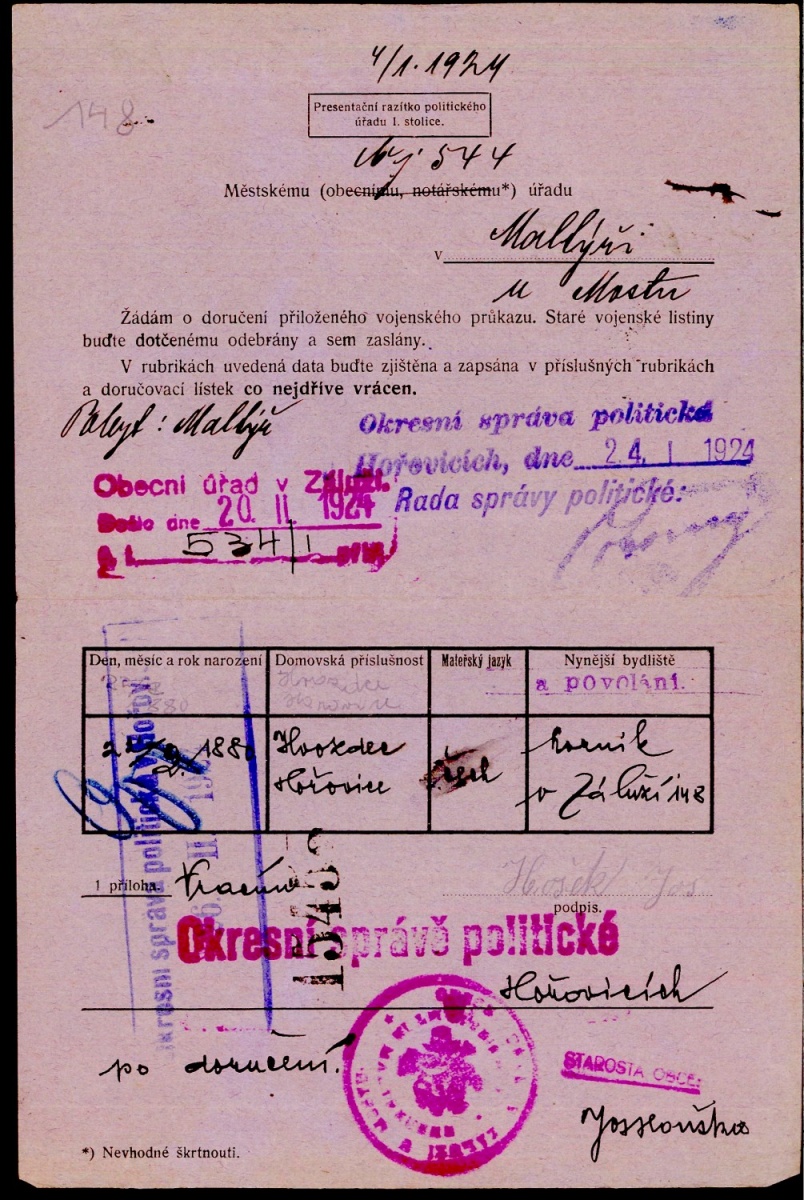 4/1. 1924
148
Presentační razítko politického
úřadu I. stolice.
Nj. 544
Městskému (obecnímu, notářskému*) úřadu
v Mallýři
u Mostu
Žádám o doručení přiloženého vojenského průkazu. Staré vojenské listiny
buďte dotčenému odebrány a sem zaslány.
V rubrikách uvedená data buďte zjištěna a zapsána v příslušných rubrikách
a doručovací lístek co nejdříve vrácen.
Pobyt: Mallýř
Okresní správa politická
Hořovicích, dne 24. I 1924
Rada správy politické:
Obecní úřad v Záluží.
Došlo dne 20. II. 1924
č. j. 534/1 příl.
Den, měsíc a rok narození
Domovská příslušnost
Mateřský jazyk
Nynější bydliště
a povolání.
Hvozdec
Hořovice
1880
Hvozdec
Hořovice
čech
horník
v Záluží 148
Okresní správa politická v Hořov
1 příloha.
Vracím
Hošek Jos
podpis.
Okresní správě politické
Hořovicích
po doručení.
STAROSTA OBCE:
*) Nevhodné škrtnouti.